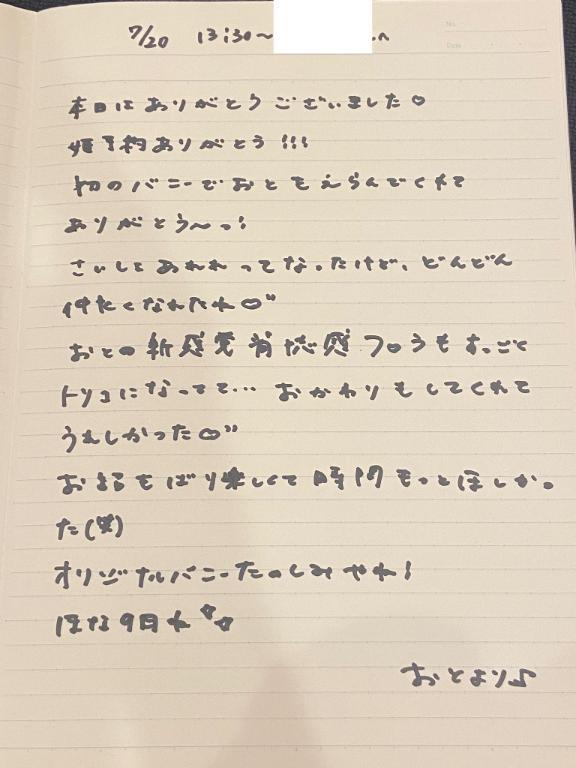 7/20 13:30~ さん
No.
Date
本日はありがとうございました♡
姫予約ありがとう!!!
初のバニーでおとをえらんでくれて
ありがとう〜っ!
さいしょあわわってなったけど、どんどん
仲たくなれたね♡"
おとの新感覚 感フロうもすっごく
トリコになってて… おかわりもしてくれて
うれしかった♡"
お話もばり楽しくて時間もっとほしかっ
た(笑)
オリジナルバニーたのしみやね!
ほな9日ね
おとより♪